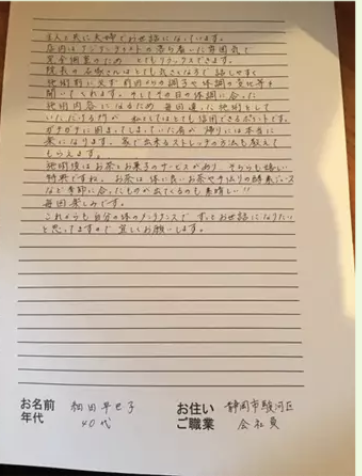 主人と共に夫婦でお世話になっています。
店内はアジアンテイストの落ち着いた雰囲気で
完全個室のため とてもリラックスできます。
院長の さんはとても気さくな方で話しやすく
施術前に必ず前回からの調子や体調の変化等を
聞いてくれます。そしてその日の体調に合った
施術内容になるため 毎回違った施術として
いただける所が 私としてはとても信用できるポイントです。
ガチガチに固まってしまっていた肩が 帰りには本当に
楽になります。家で出来るストレッチの方法も教えて
もらえます。
施術後はお茶とお菓子のサービスがあり そちらも嬉しい
特典ですね。お茶は体に良いお茶や手作りの酵素ジュース
など季節に合ったものが出てくるのも素晴しい!!
毎回楽しみです。
これからも自分の体のメンテナンスで ずっとお世話になりたい
と思ってますので宜しくお願いします。
お名前 和田早世子
年代 40代
お住い 静岡市駿河区
ご職業 会社員